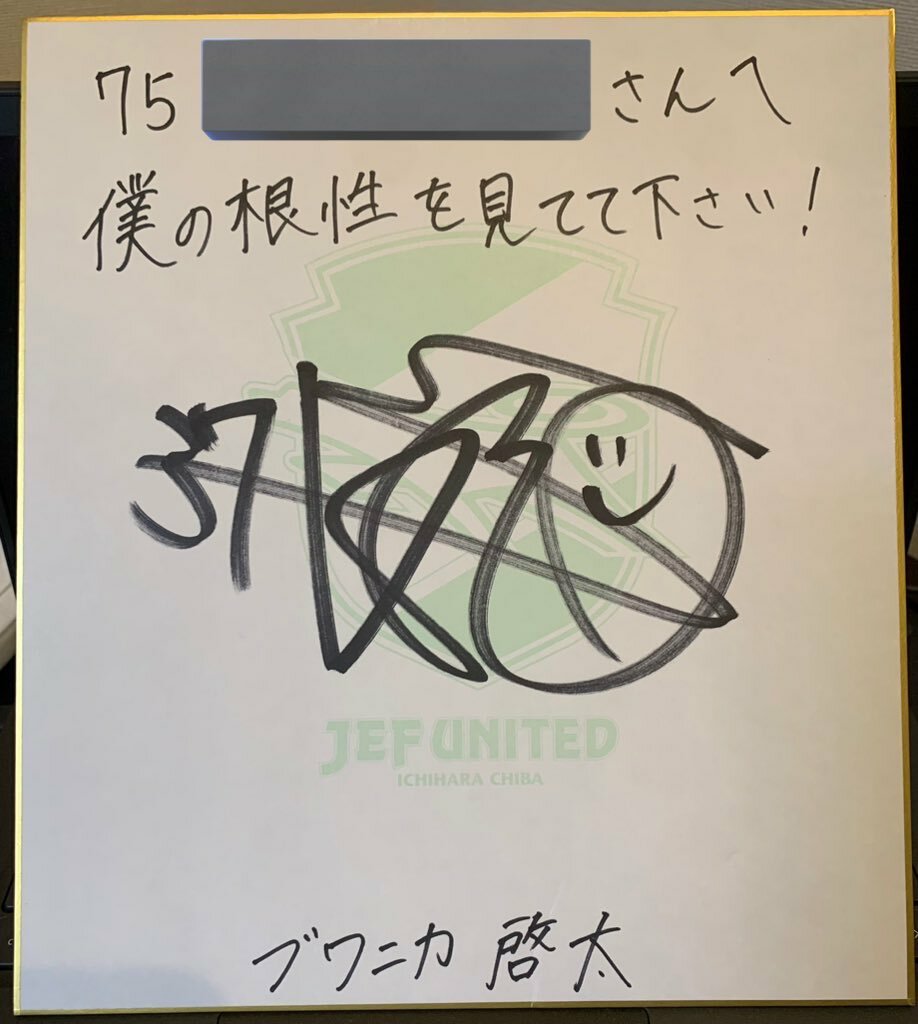 75 さんへ
僕の根性を見てて下さい!
37
JEF UNITED
ICHIHARA CHIBA
ブワニカ 啓太